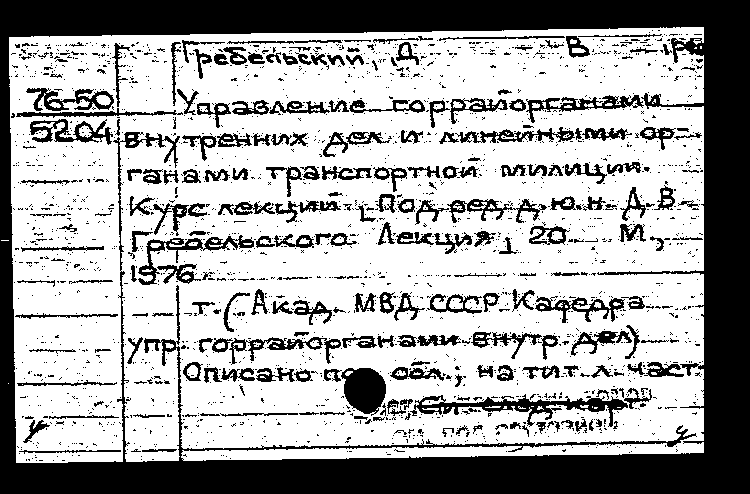 Гребельский, Д В
76-50 Управление горрайорганами
5204 внутренних дел и линейными ор-
ганами транспортной милиции.
Курс лекций [Под ред. д.ю.н. Д.В.
Гребельского. Лекция] 20. М.,
1976.
т. (Акад. МВД СССР. Кафедра
упр. горрайорганами внутр. дел)
Описано по обл.; на тит. л. част.
См. след. карт.